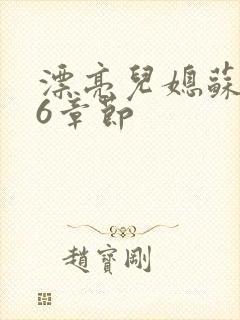 漂亮兒媳蘇
6章節
趙寶剛